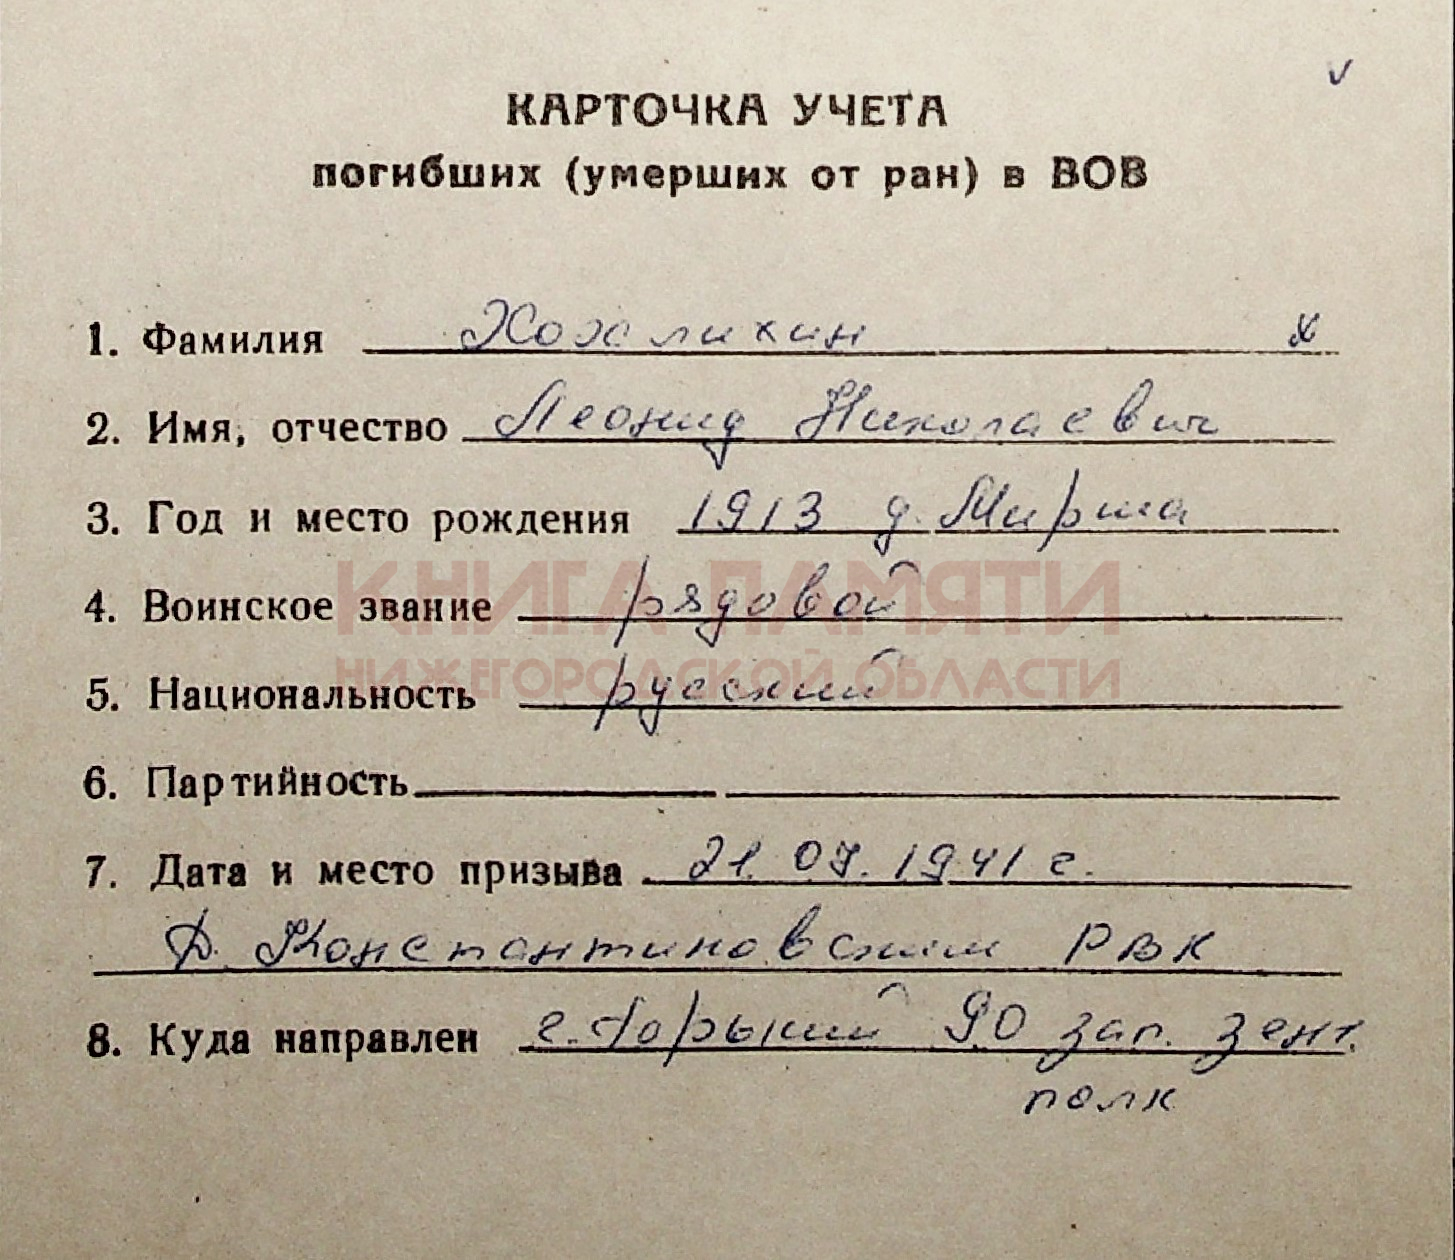 КАРТОЧКА УЧЕТА
погибших (умерших от ран) в ВОВ
1. Фамилия Хохликин х
2. Имя, отчество Леонид Николаевич
3. Год и место рождения 1913 д. Мирша
КНИГА ПАМЯТИ
4. Воинское звание рядовой
НИЖЕГОРОДСКОЙ ОБЛАСТИ
5. Национальность русский
6. Партийность
7. Дата и место призыва 21.07.1941 г.
Д. Константиновским РВК
8. Куда направлен г. Горький 90 зап. зент.
полк